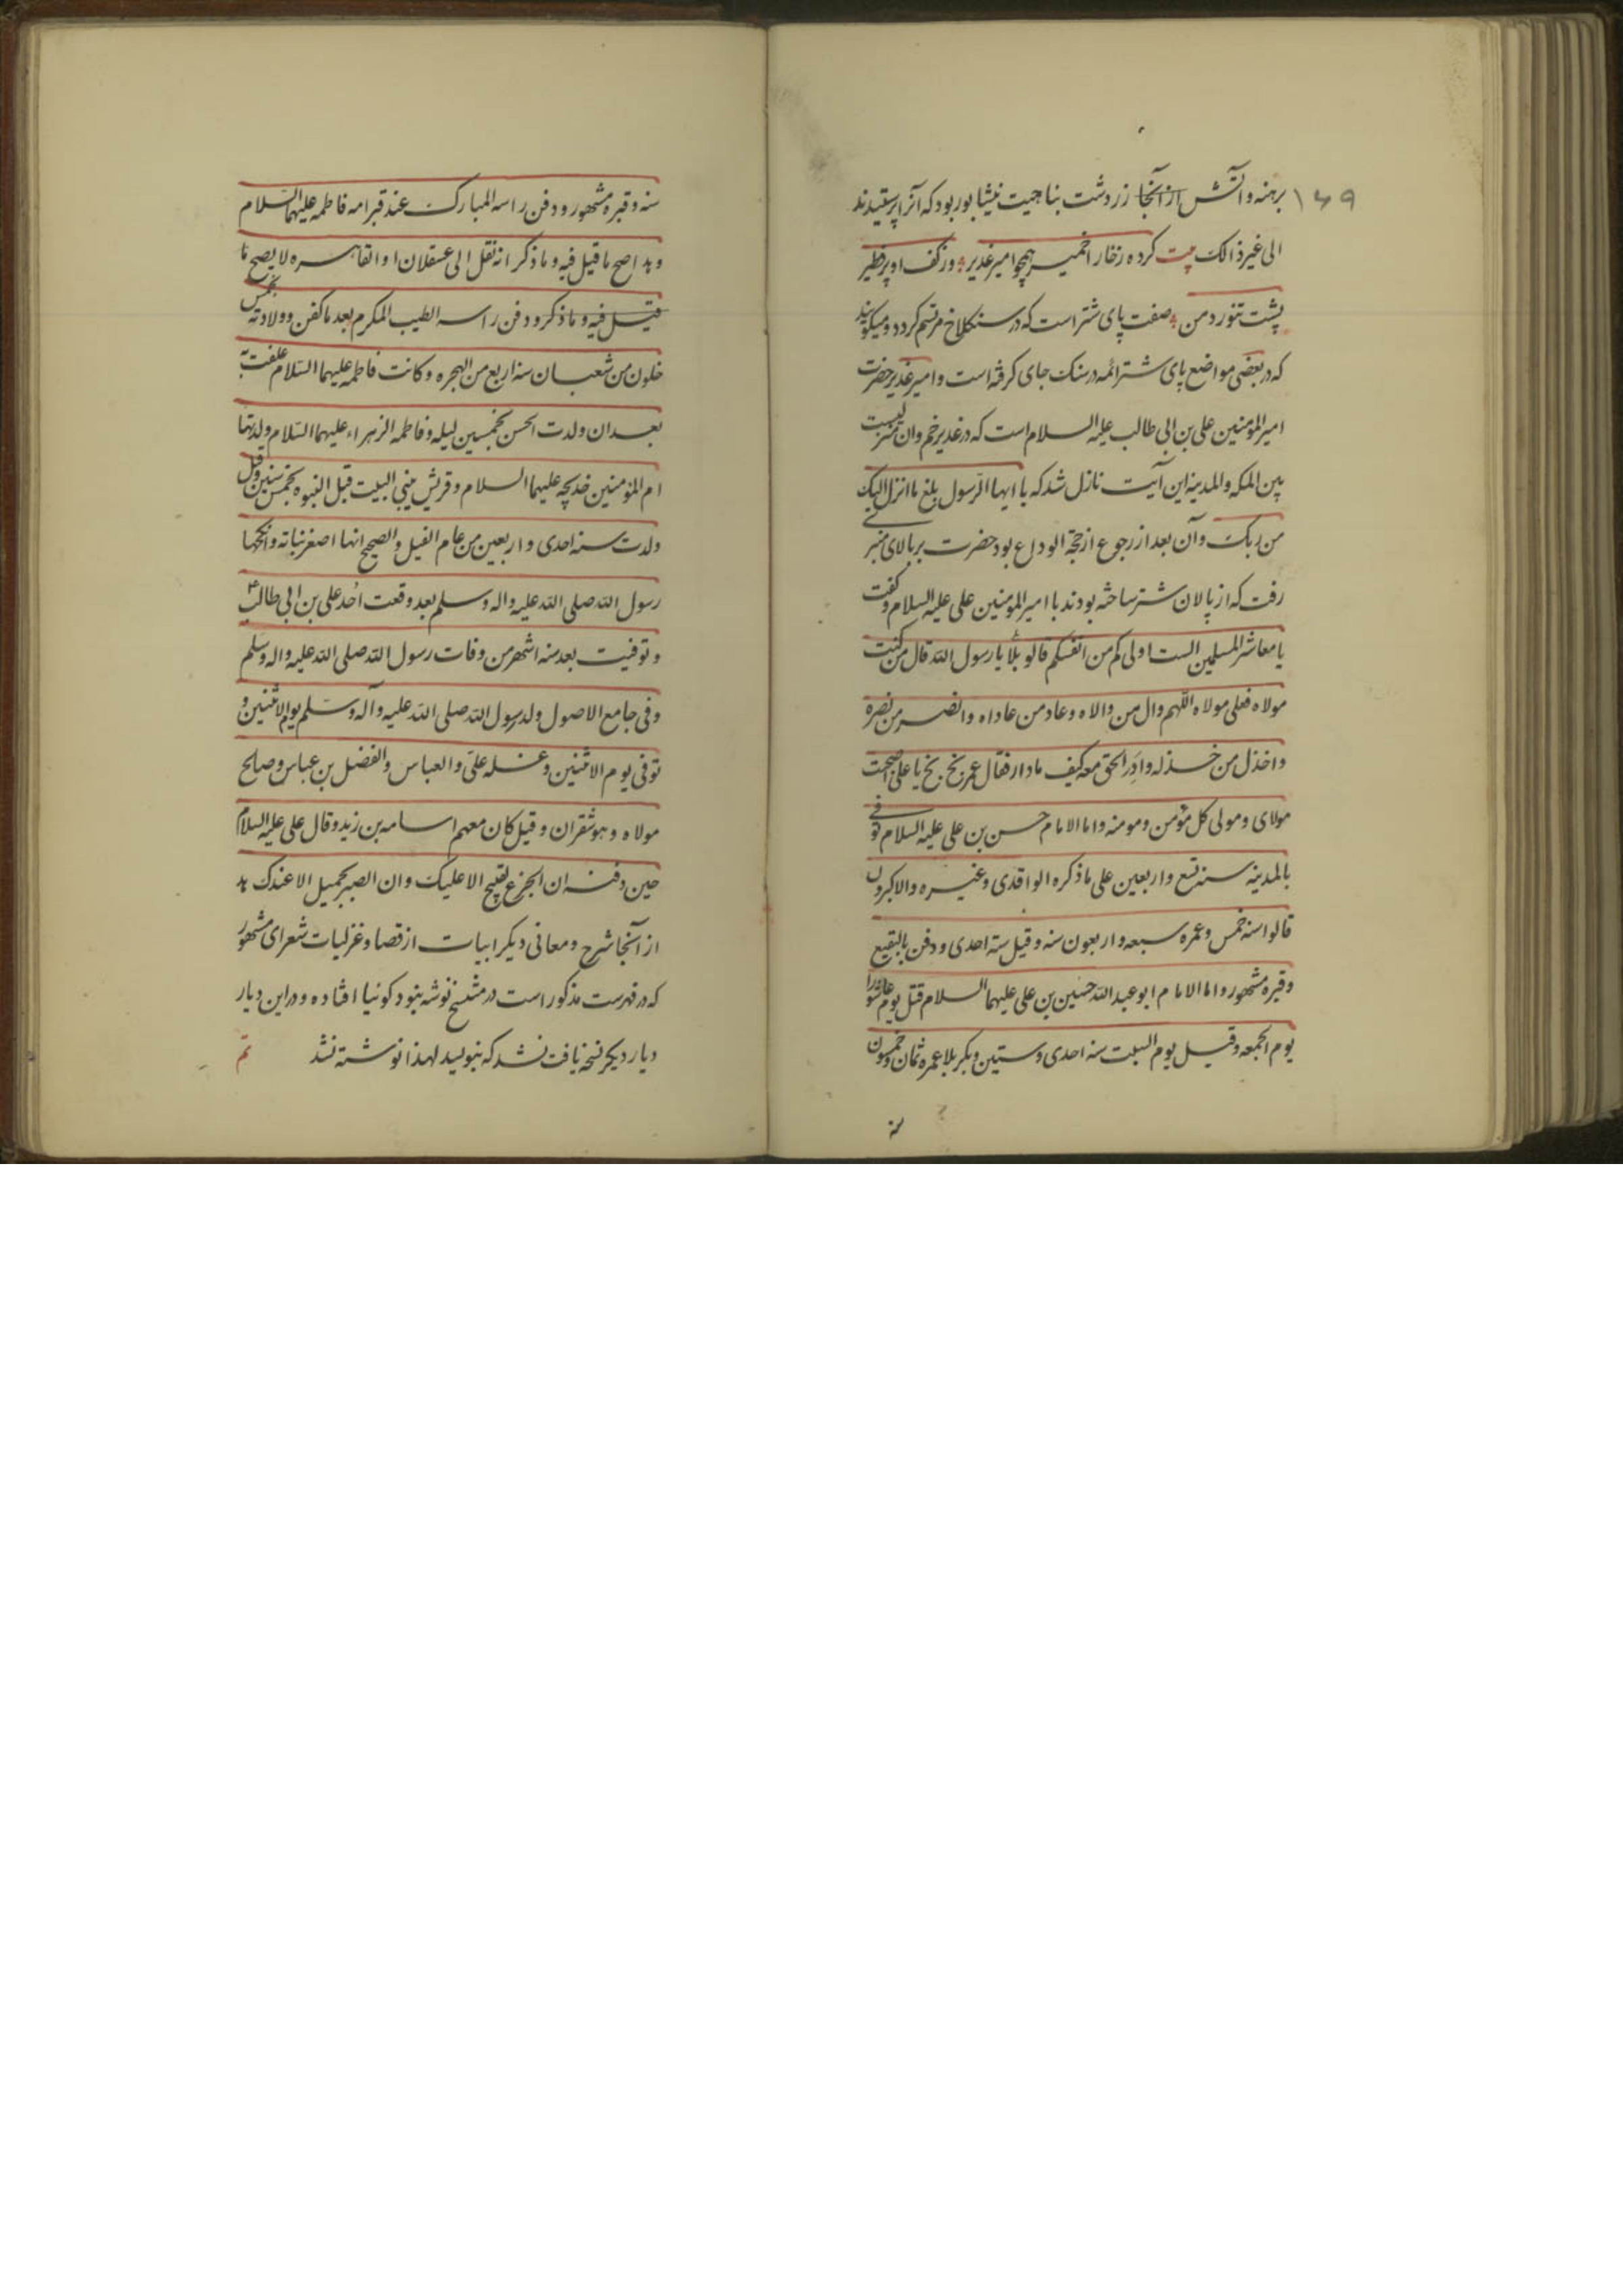 ۱۶۹
برهنه و آتش از آنجا زردشت بناحیت نیشابور بود که آنرا پرستیدند
الی غیر ذالک بیت کرده رخفار اخمیر همچو امیر غدیر وز کف او پر فطیر
پشت تنور دمن صفت پای شتر است که در سنکلاخ مرتسم کردد و میکویند
که در بعضی مواضع پای شتر ائمه در سنک جای کرفته است و امیر غدیر حضرت
امیر المؤمنین علی بن ابی طالب علیه السلام است که در غدیر خم وان منزلیست
بین المکه والمدینه این آیت نازل شد که یا ایها الرسول بلغ ما انزل الیک
من ربک و آن بعد از رجوع از حجة الوداع بود حضرت بر بالای منبری
رفت که از پالان شتر ساخته بودند با امیر المومنین علی علیه السلام و کفت
یا معاشر المسلمین الست اولی کم من انفسکم قالو بلا یا رسول الله قال من کنت
مولاه فعلی مولاه اللهم وال من والاه وعاد من عاداه وانصر من نصره
واخذل من خذله وادر الحق معه کیف ما دار فقال عمر بخ بخ یا علی اصبحت
مولای ومولی کل مؤمن ومومنه واما الامام حسن بن علی علیه السلام توفی
بالمدینه سنه تسع واربعین علی ما ذکره الواقدی وغیره والاکثرون
قالوا سنه خمس وعمره سبعه واربعون سنه وقیل سته احدی ودفن بالبقیع
وقبره مشهور واما الامام ابو عبد الله حسین بن علی علیهما السلام قتل یوم عاشورا
یوم الجمعه وقیل یوم السبت سنه احدی وستین بکربلا عمره ثمان وخمسون
سنه
سنه وقبره مشهور ودفن راسه المبارک عند قبر امه فاطمه علیهما السلام
وهذا اصح ما قیل فیه وما ذکر انه نقل الی عسقلان او القاهره لا یصح ما
قیل فیه وما ذکر ودفن راسه الطیب المکرم بعد ما کفن وولادته بخمس
خلون من شعبان سنه اربع من الهجره وکانت فاطمه علیهما السلام علقت به
بعد ان ولدت الحسن بخمسین لیله وفاطمه الزهراء علیهما السلام ولدتها
ام المؤمنین خدیجه علیهما السلام وقریش یبنی البیت قبل النبوه بخمس سنین وقیل
ولدت سنه احدی واربعین من عام الفیل والصحیح انها اصغر بناته وانکحها
رسول الله صلی الله علیه واله وسلم بعد وقعت اُحد علی بن ابی طالب ع
وتوفیت بعد سته اشهر من وفات رسول الله صلی الله علیه واله وسلم
وفی جامع الاصول ولد رسول الله صلی الله علیه وآله وسلم یوم الاثنین و
توفی یوم الاثنین وغسله علی والعباس والفضل بن عباس وصالح
مولاه وهو شقران وقیل کان معهم اسامه بن زید وقال علی علیه السلام
حین دفنه ان الجزع لقبیح الا علیک وان الصبر لجمیل الا عندک هذا
از آنجا شرح ومعانی دیکر ابیات از قصا وغزلیات شعرای مشهور
که در فهرست مذکور است در مشنسخ نوشته بنود کوئیا افتاده و در این دیار
دیار دیکر نسخه یافت نشد که بنویسد لهذا نوشته نشد تم